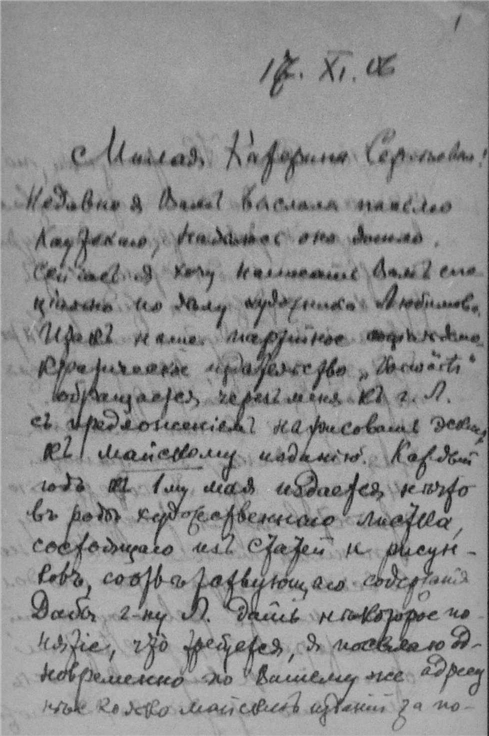 1
17. XI. 06
Милая Катерина Сергѣевна!
Недавно я Вамъ выслала письмо
Каутскаго, надѣюсь оно дошло.
Сейчасъ я хочу написать Вамъ спе
ціально по дѣлу художника Любимова.
Итакъ наше партійное
кратическое издательство „Vorwärts"
обращается черезъ меня къ г. Л.
съ предложеніемъ нарисовать эскизъ
къ майскому изданію. Каждый
годъ къ 1му мая издается нѣчто
въ родѣ художественнаго листка,
состоящаго изъ статей и рисун-
ковъ, соотвѣтствующаго содержанія
Дабы г-ну Л. дать нѣкоторое по-
нятіе, что требуется, я посылаю од-
новременно по Вашему же адресу
майскихъ изданій за по-